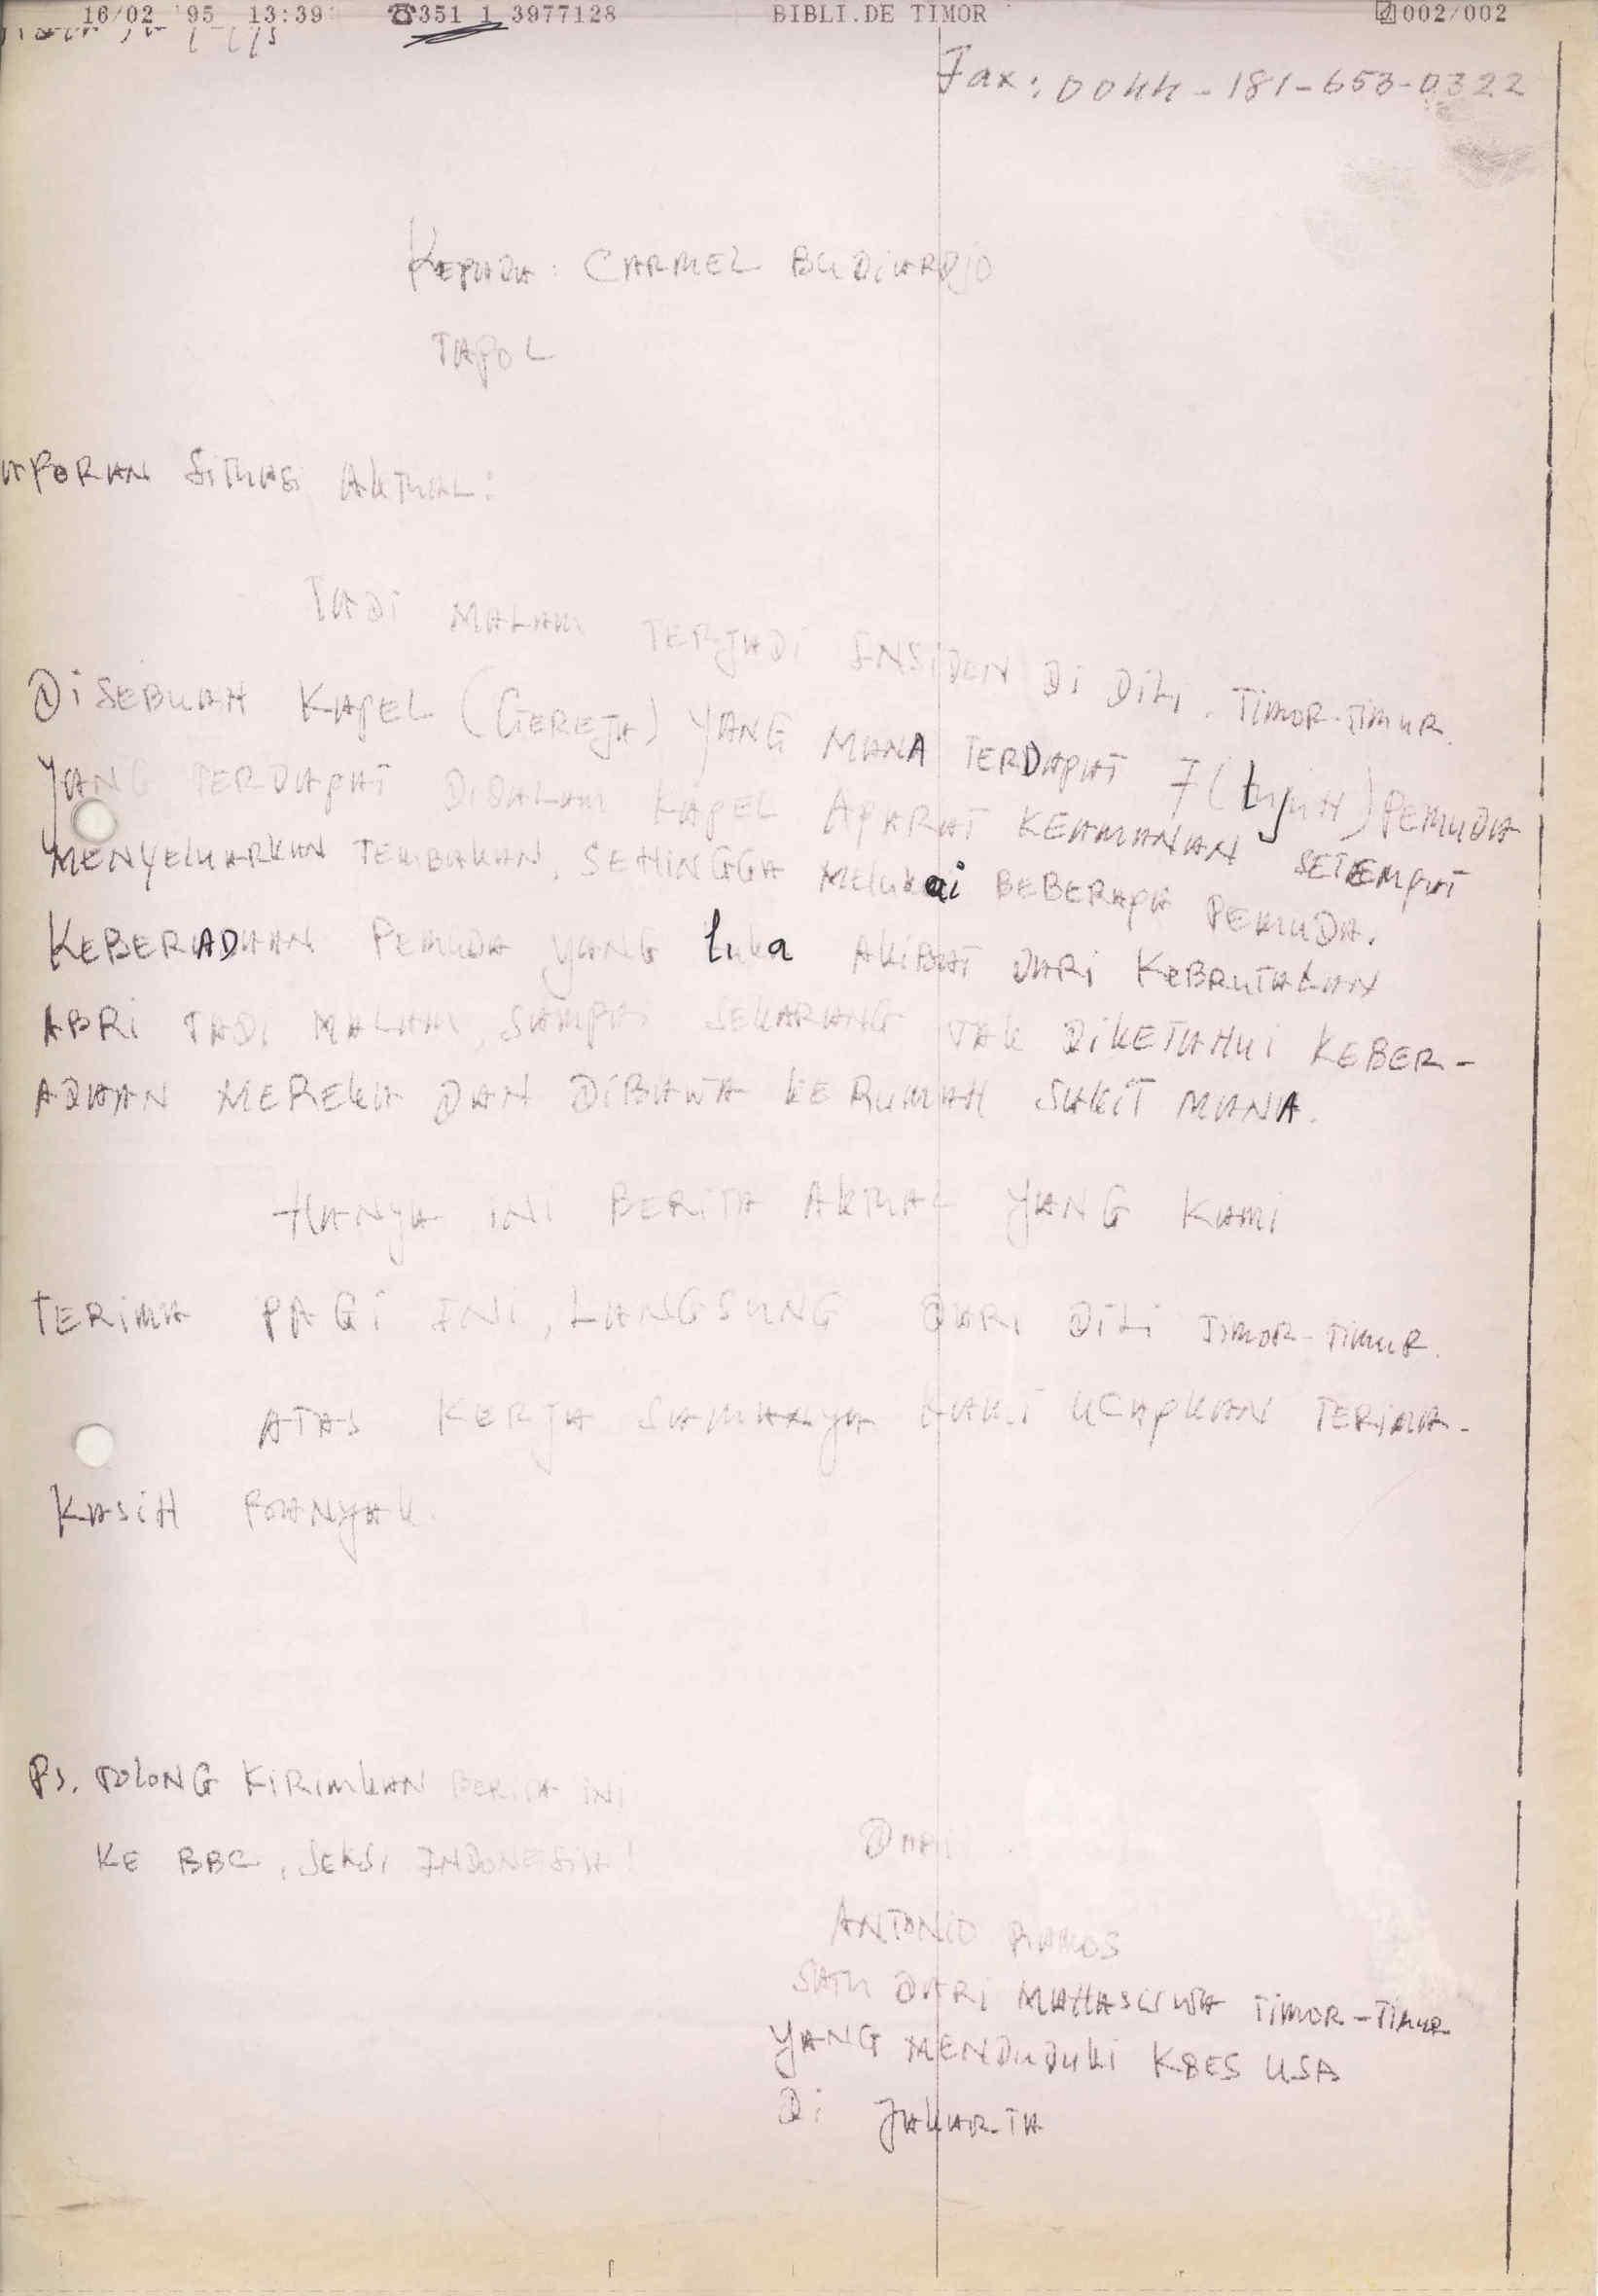 16/02 '95 13:39 ☎351 1 3977128 BIBLI.DE TIMOR 002/002
Fax: 0044-181-653-0322
KEPADA: CARMEL BUDIARDJO
TAPOL
APORAN SITUASI AKTUAL:
TADI MALAM TERJADI INSIDEN DI DILI. TIMOR-TIMUR.
DI SEBUAH KAPEL (GEREJA) YANG MANA TERDAPAT 7 (tujuH) PEMUDA
YANG TERDAPAT DIDALAM KAPEL APARAT KEAMANAN SETEMPAT
MENYELUARKAN TEMBAKAN, SEHINGGA MELUKAi BEBERAPA PEMUDA.
KEBERADAAN PEMUDA YANG luka AKIBAT DARI KEBRUTALAN
ABRI TADI MALAM, SAMPAI SEKARANG TAK DIKETAHUI KEBER-
ADAAN MEREKA DAN DIBAWA KERUMAH SAKIT MANA.
HANYA INI BERITA AKTUAL YANG KAMI
TERIMA PAGI INI, LANGSUNG DARI DILI TIMOR-TIMUR.
ATAS KERJA SAMANYA KAMI UCAPKAN TERIMA-
KASIH BANYAK.
Ps. TOLONG KIRIMKAN BERITA INI
KE BBC, SEKSI INDONESIA!
DARI
ANTONIO RAMOS
SATU DARI MAHASISWA TIMOR-TIMUR
YANG MENDUDUKI KBES USA
DI JAKARTA